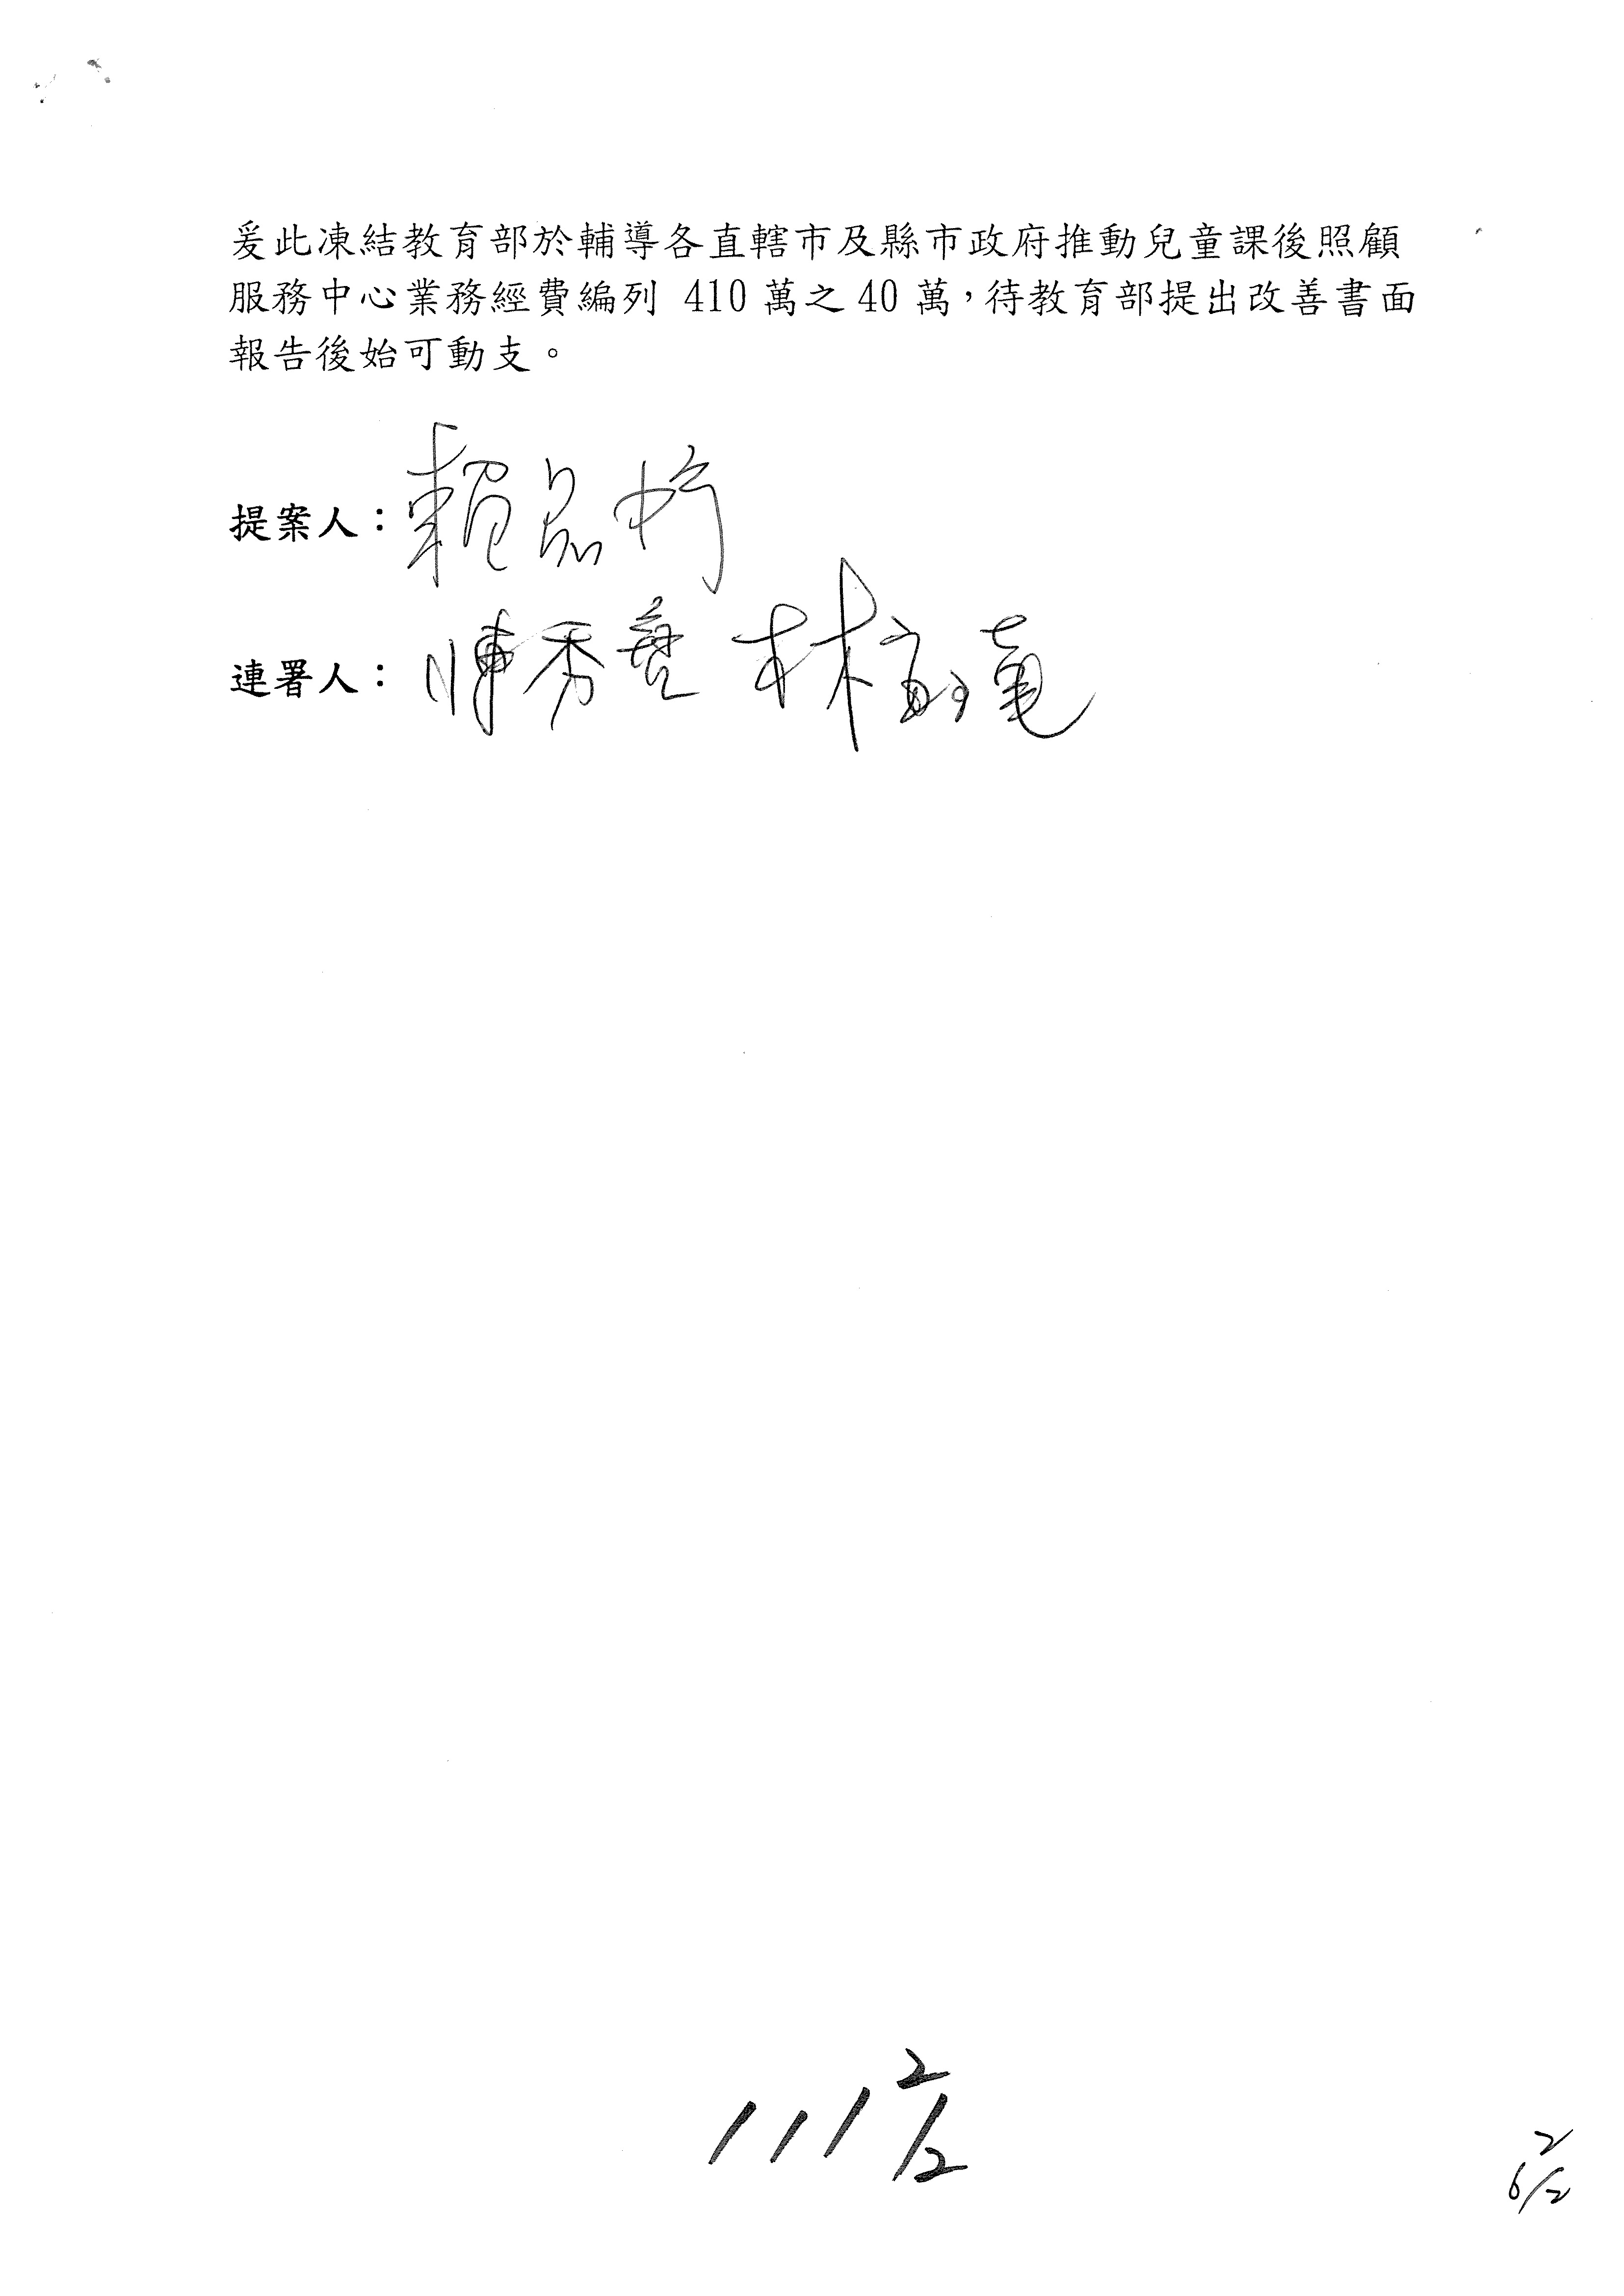 爰此凍結教育部於輔導各直轄市及縣市政府推動兒童課後照顧
服務中心業務經費編列 410 萬之 40 萬，待教育部提出改善書面
報告後始可動支。
提案人：賴品妤
連署人：陳秀寳 林宜瑾
111 2/2
6 2/2